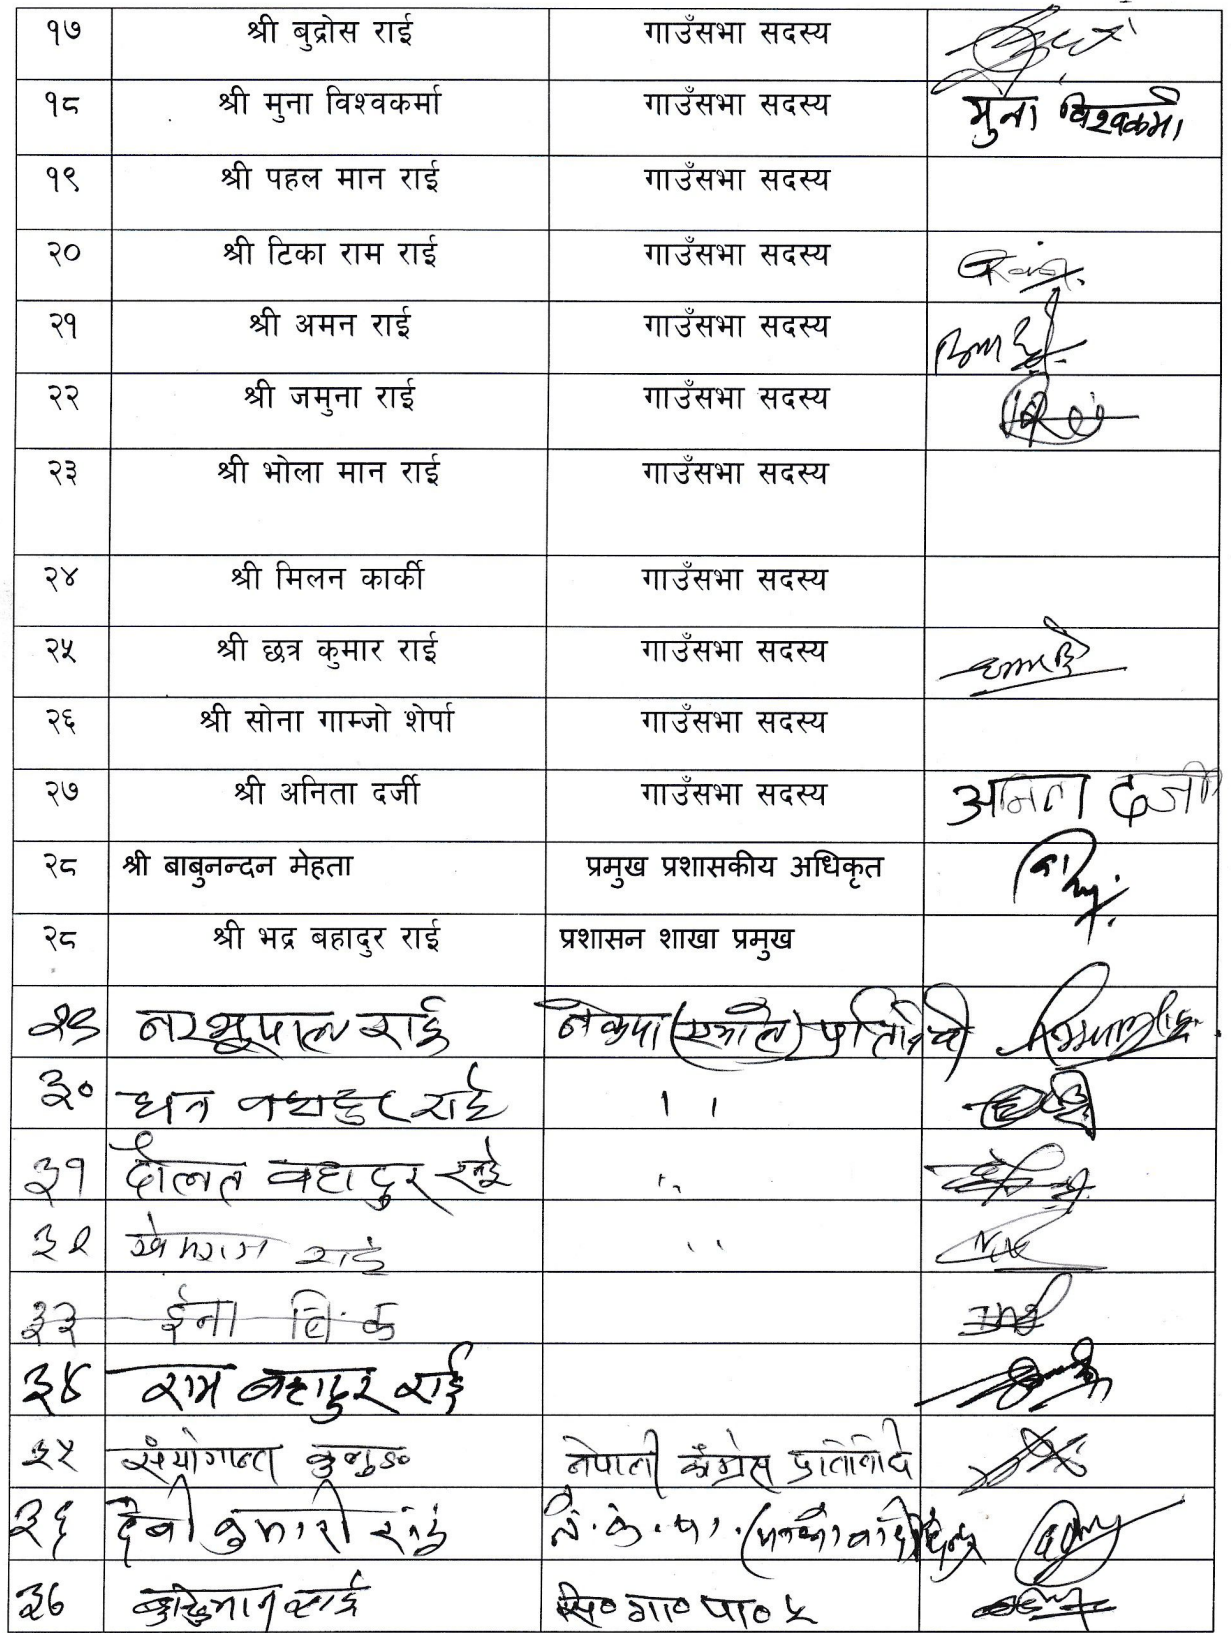 १७ श्री बुद्रोस राई गाउँसभा सदस्य
१८ श्री मुना विश्वकर्मा गाउँसभा सदस्य मुना विश्वकर्मा
१९ श्री पहल मान राई गाउँसभा सदस्य
२० श्री टिका राम राई गाउँसभा सदस्य
२१ श्री अमन राई गाउँसभा सदस्य
२२ श्री जमुना राई गाउँसभा सदस्य
२३ श्री भोला मान राई गाउँसभा सदस्य
२४ श्री मिलन कार्की गाउँसभा सदस्य
२५ श्री छत्र कुमार राई गाउँसभा सदस्य
२६ श्री सोना गाम्जो शेर्पा गाउँसभा सदस्य
२७ श्री अनिता दर्जी गाउँसभा सदस्य अनिता दर्जी
२८ श्री बाबुनन्दन मेहता प्रमुख प्रशासकीय अधिकृत
२८ श्री भद्र बहादुर राई प्रशासन शाखा प्रमुख
२९ नरभूपाल राई नेकपा (एमाले)
३० धन बहादुर राई
३१ दौलत बहादुर राई
३२ राई
३३ ईना बि. क
३४ राम बहादुर राई
३५ नेपाली काँग्रेस प्रतिनिधि
३६ देवी कुमारी राई ने. क. पा.
३७ बुद्धिमान राई गा० पा० ५